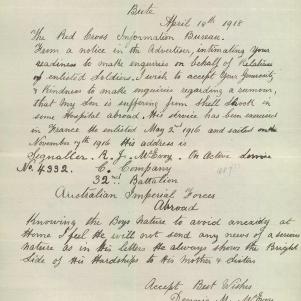 Bute
April 14th 1918
The Red Cross Information Bureau.
From a notice in the Advertiser, intimating your
readiness to make enquiries on behalf of Relations
of enlisted Soldiers, I wish to accept your Generosity
& Kindness to make enquiries regarding a rumour,
that My Son is suffering from Shell Shock in
some Hospital abroad. His service has been
in France He enlisted May 2nd 1916 and sailed on
November 7th 1916 His address is
Signaller. R. J. McEvoy. On Active Service
No. 4332. C. Company
32nd Battalion
Australian Imperial Forces
Abroad
Knowing the Boys nature to avoid anxiety at
Home I feel He will not send any news of a serious
nature as in His letters He always shows the Bright
Side of His Hardships to His Mother & Sisters
Accept Best Wishes
Dennis M. McEvoy